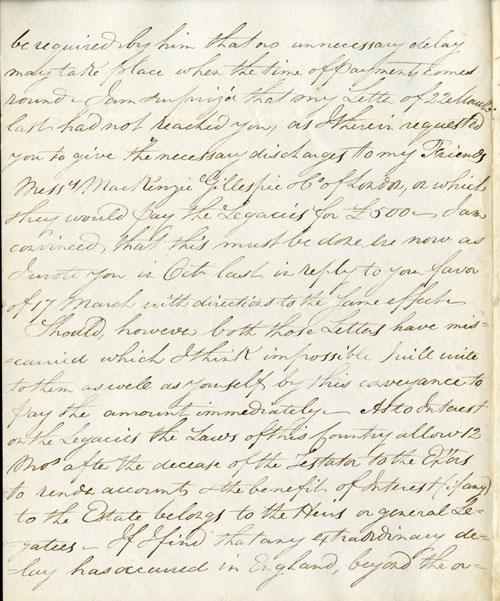 be required by him that no unnecessary delay
may take place when the time of payment comes
round. I am surpriz'd that my Letter of 22 March
last had not reached you, as I therein requested
you to give the necessary discharges to my Friends
Mess.rs MacKenzie Gillespie & Co of London, on which
they would pay the Legacies for £500 – I am
convinced, that this must be done ere now as
I wrote you in Octr last in reply to your favor
of 17 March with directions to the same effect –
Should, however both those Letters have mis-
-carried which I think impossible I will write
to them as well as yourself, by this conveyance to
pay the amount immediately – As to Interest
on the Legacies the Laws of this Country allow 12
Mos after the decease of the Testator to the Extors
to render accounts & the benefit of Interest (if any)
to the Estate belongs to the Heirs or general Le-
-gatees – If I find that any extraordinary de-
-lay has occurred in England, beyond the or-